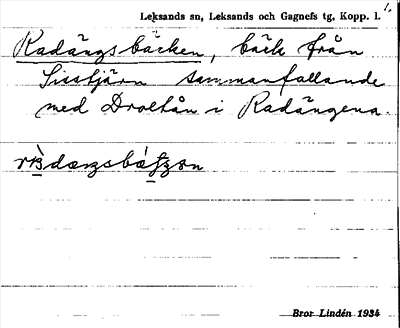 Leksands sn, Leksands och Gagnefs tg, Kopp. l. 1.
Radängsbäcken, bäck från
Sisstjärn sammanfallande
med Draltån i Radängena.
Bror Lindén 1934